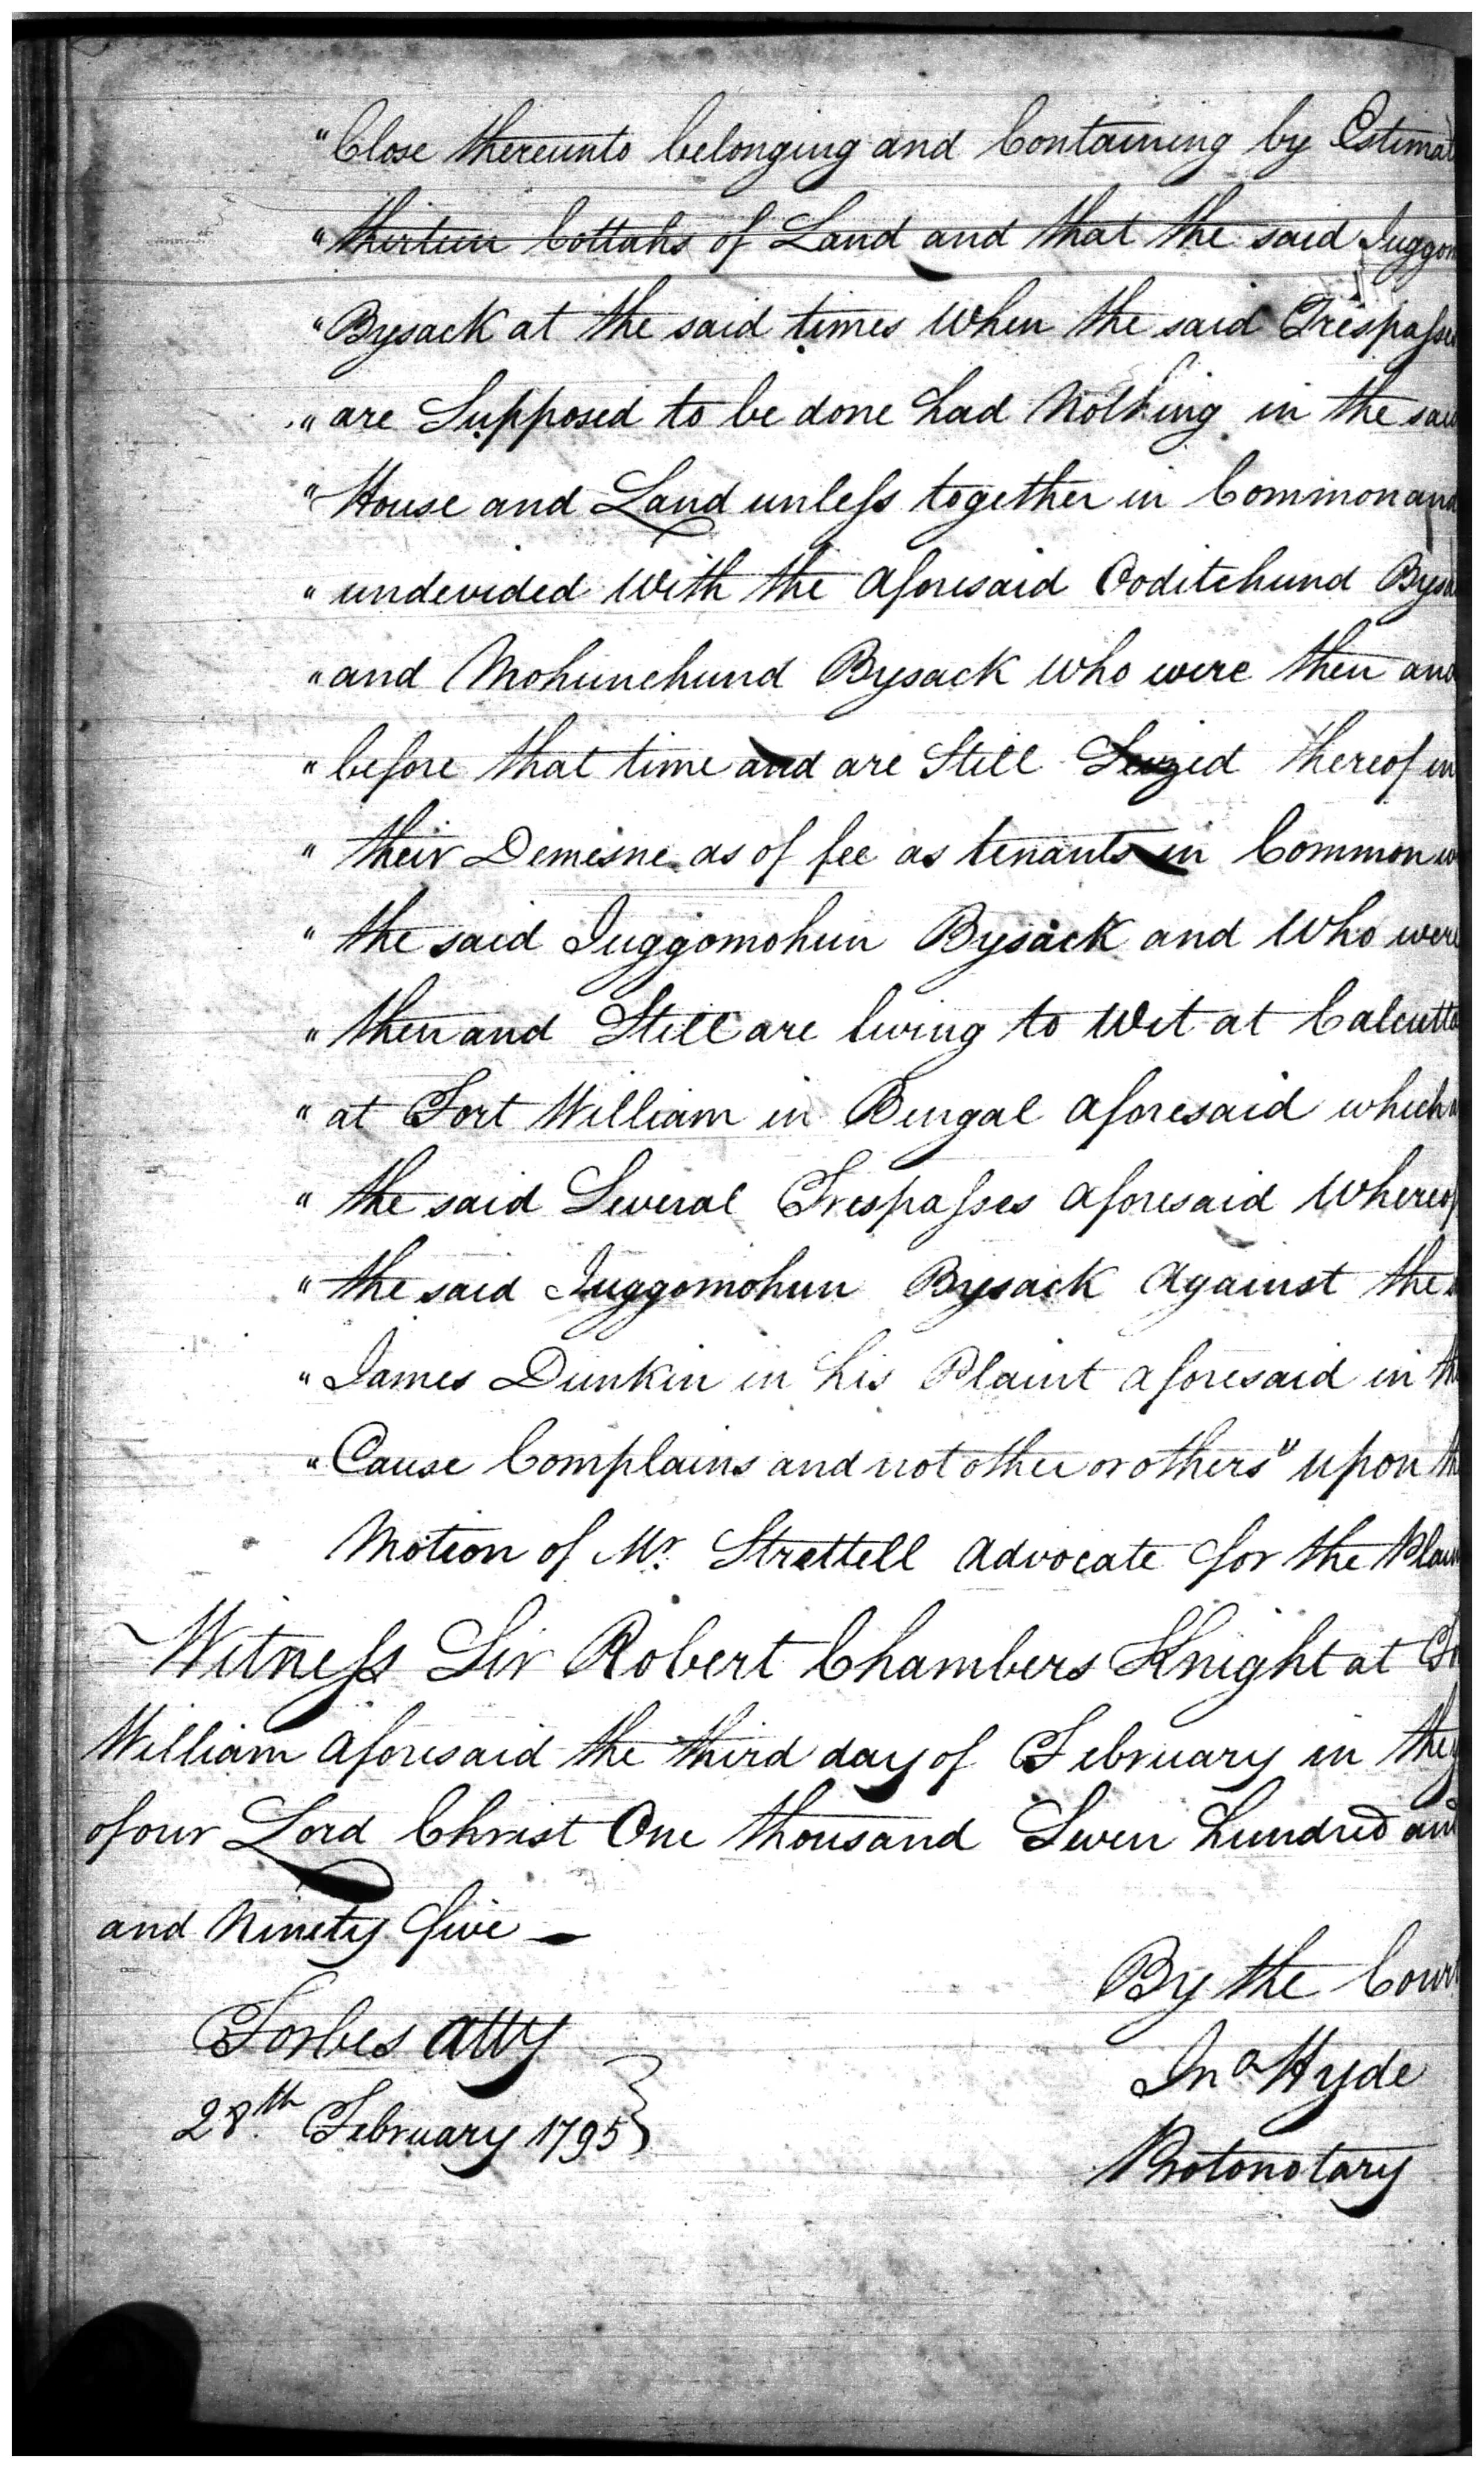 "Close thereunto belonging and Containing by Estimat
"thirteen Cottahs of Land and that the said Juggom
"Bysack at the said times When the said Trespasses
"are Supposed to be done had Nothing in the said
"House and Land unless together in Common and
"undevided With the aforesaid Ooditchund Bysa
"and Mohunchund Bysack who were then and
"before that time and are Still Seized thereof in
"their Demesne as of fee as tenants in Common w
"the said Juggomohun Bysack and Who were
"then and Still are living to Wit at Calcutta
"at Fort William in Bengal aforesaid which
"the said Several Trespasses aforesaid Whereof
"the said Juggomohun Bysack Against the
"James Dunkin in his Plaint aforesaid in th
"Cause Complains and not other or others" upon th
Motion of Mr. Strettell Advocate for the Plain
Witness Sir Robert Chambers Knight at Fo
William aforesaid the third day of February in the y
of our Lord Christ One thousand Seven hundred and
and Ninety five —
By the Court
Forbes Atty
Jna Hyde
28th February 1795}
Protonotary